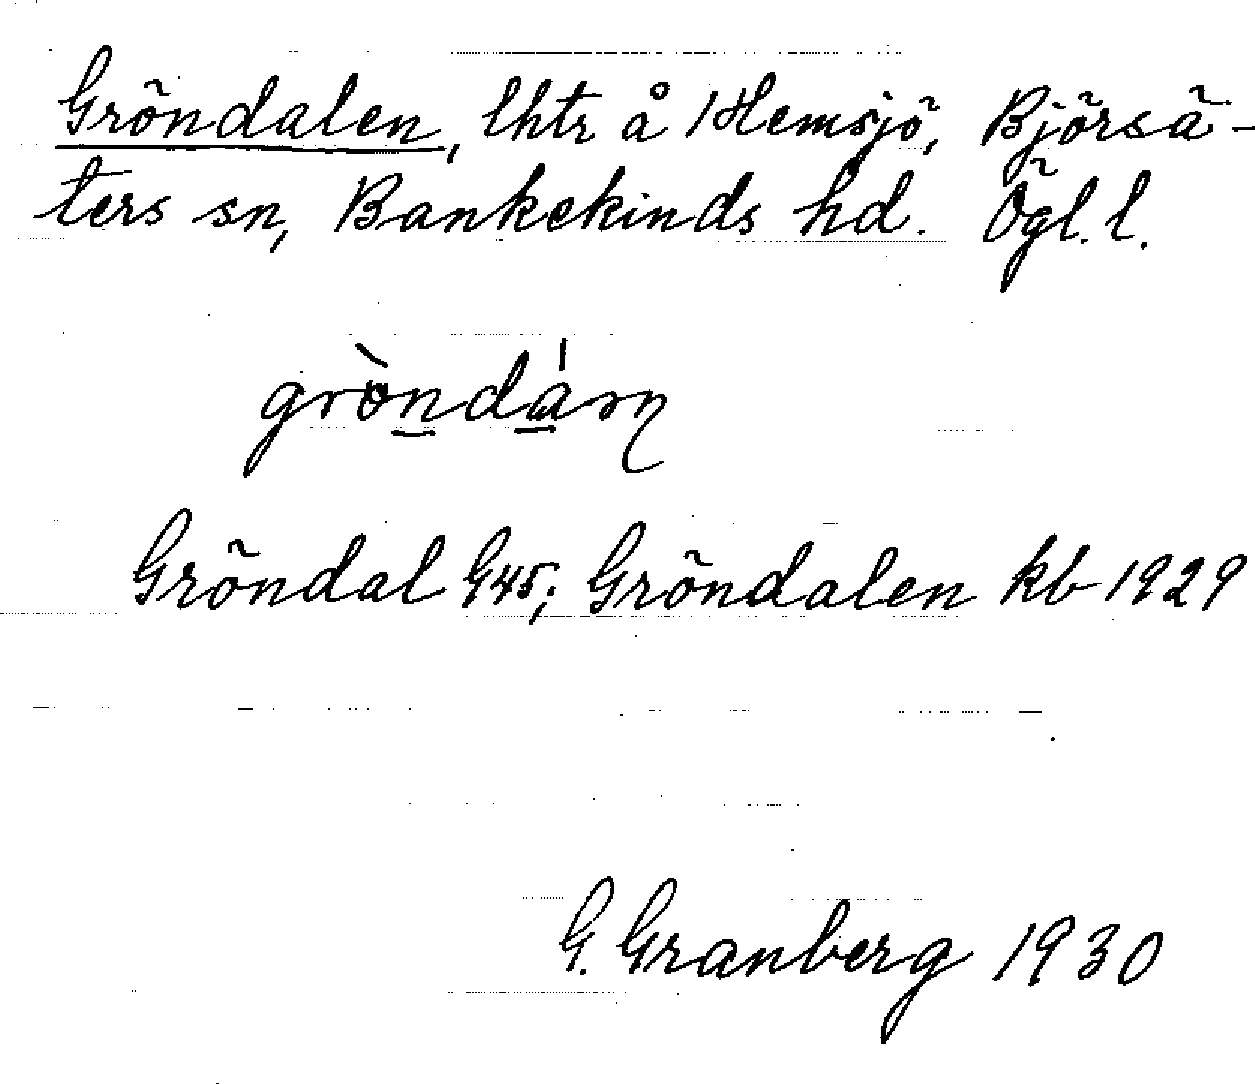 Gröndalen, lhtr å Hemsjö, Björsä-
ters sn, Bankekinds hd. Ögl. l.
Gröndal G45; Gröndalen kb 1929
G. Granberg 1930